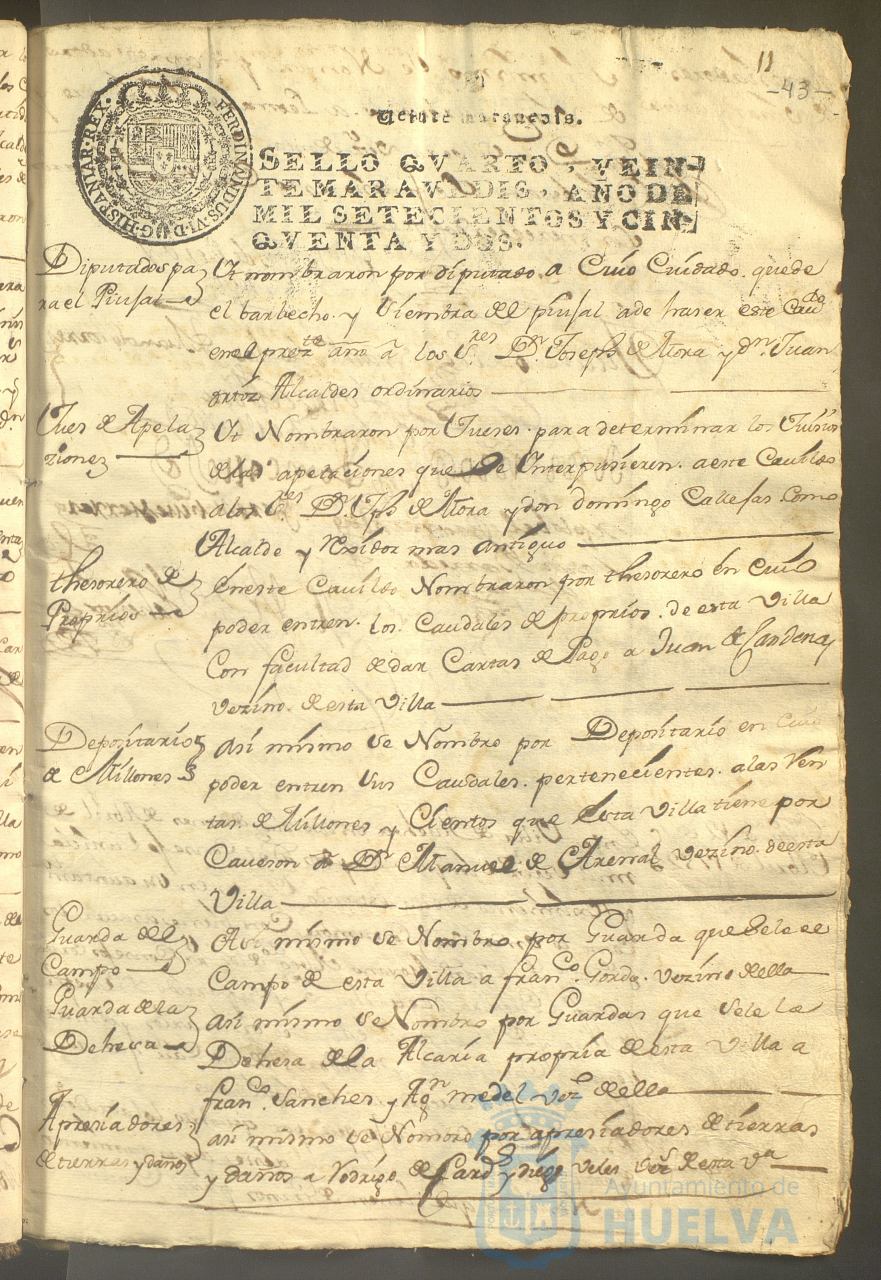 11
-43-
FERDINANDUS·VI·D·G·HISPANIAR·REX·
Veinte maravedis.
SELLO QVARTO, VEIN-
TE MARAVEDIS, AÑO DE
MIL SETECIENTOS Y CIN-
QVENTA Y DOS.
Diputados pa
ra el Piusal
Nombraron por diputado a Cuio Cuidado quede
el barbecho y Siembra del piusal a de haser este Cavdo
en el prezte año â los Sres Dn Joseph de Mora y Dn Juan
ortiz Alcaldes ordinarios
Jues de Apela
ziones
Nombraron por Jueses para determinar los Juisios
de las apelaciones que Se Interpusieren a este Cavildo
a los Sres Dn Jph de Mora y don domingo Callejas Como
Alcalde y Rexidor mas antiguo
thesorero de
Proprios
En este Cavildo Nombraron por thesorero en Cuio
poder entren los Caudales de proprios de esta Villa
Con facultad de dar Cartas de Pago a Juan de Cardenas
vezino de esta Villa
Depositario
de Millones
Asi mismo se Nombro por Depositario en Cuio
poder entren Sus Caudales pertenecientes a las Ren
tas de Millones y Cientos que Esta Villa tiene por
Caveson Dn Manuel de Arenal vezino de esta
Villa
Guarda del
Campo
Asi mismo se Nombro por Guarda que Sele el
Campo de esta Villa a Franco Gordo vezino della
Guarda de la
Dehesa
Asi mismo se Nombro por Guardas que Sele la
Dehesa de la Alcaria propria de esta Villa a
franco Sanches y Agn medel vezos della
Apresiadores
de tierras y daños
asi mismo se Nombro por apresiadores de tierras
y daños a Rodrigo de Card y diego Veles vezs de esta Va
Ayuntamiento de
HUELVA